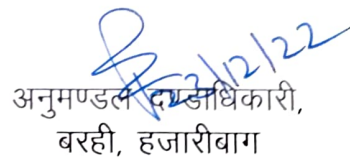 22/12/22
अनुमण्डल दण्डाधिकारी,
बरही, हजारीबाग